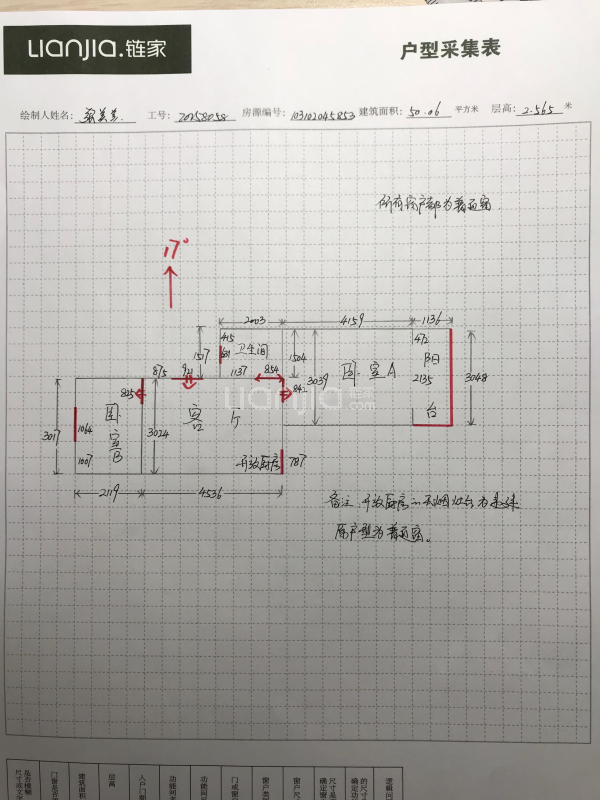 LIANJIA.链家
户型采集表
绘制人姓名: 工号: 20258058 房源编号: 103102045853 建筑面积: 50.06 平方米 层高: 2.565 米
所有窗户都为普通窗
17°
2003 4159 1136
415 472
681 卫生间 1504 阳
1517 3039 卧室A 2135 3048
875 921 1137 854
825 842 台
LIANJIA
1064 卧室B 3024 客厅
3017
1007 开放厨房 787
2119 4536
备注
原户型为普通窗。
门窗是否
建筑面积
层高
入户门
功能间